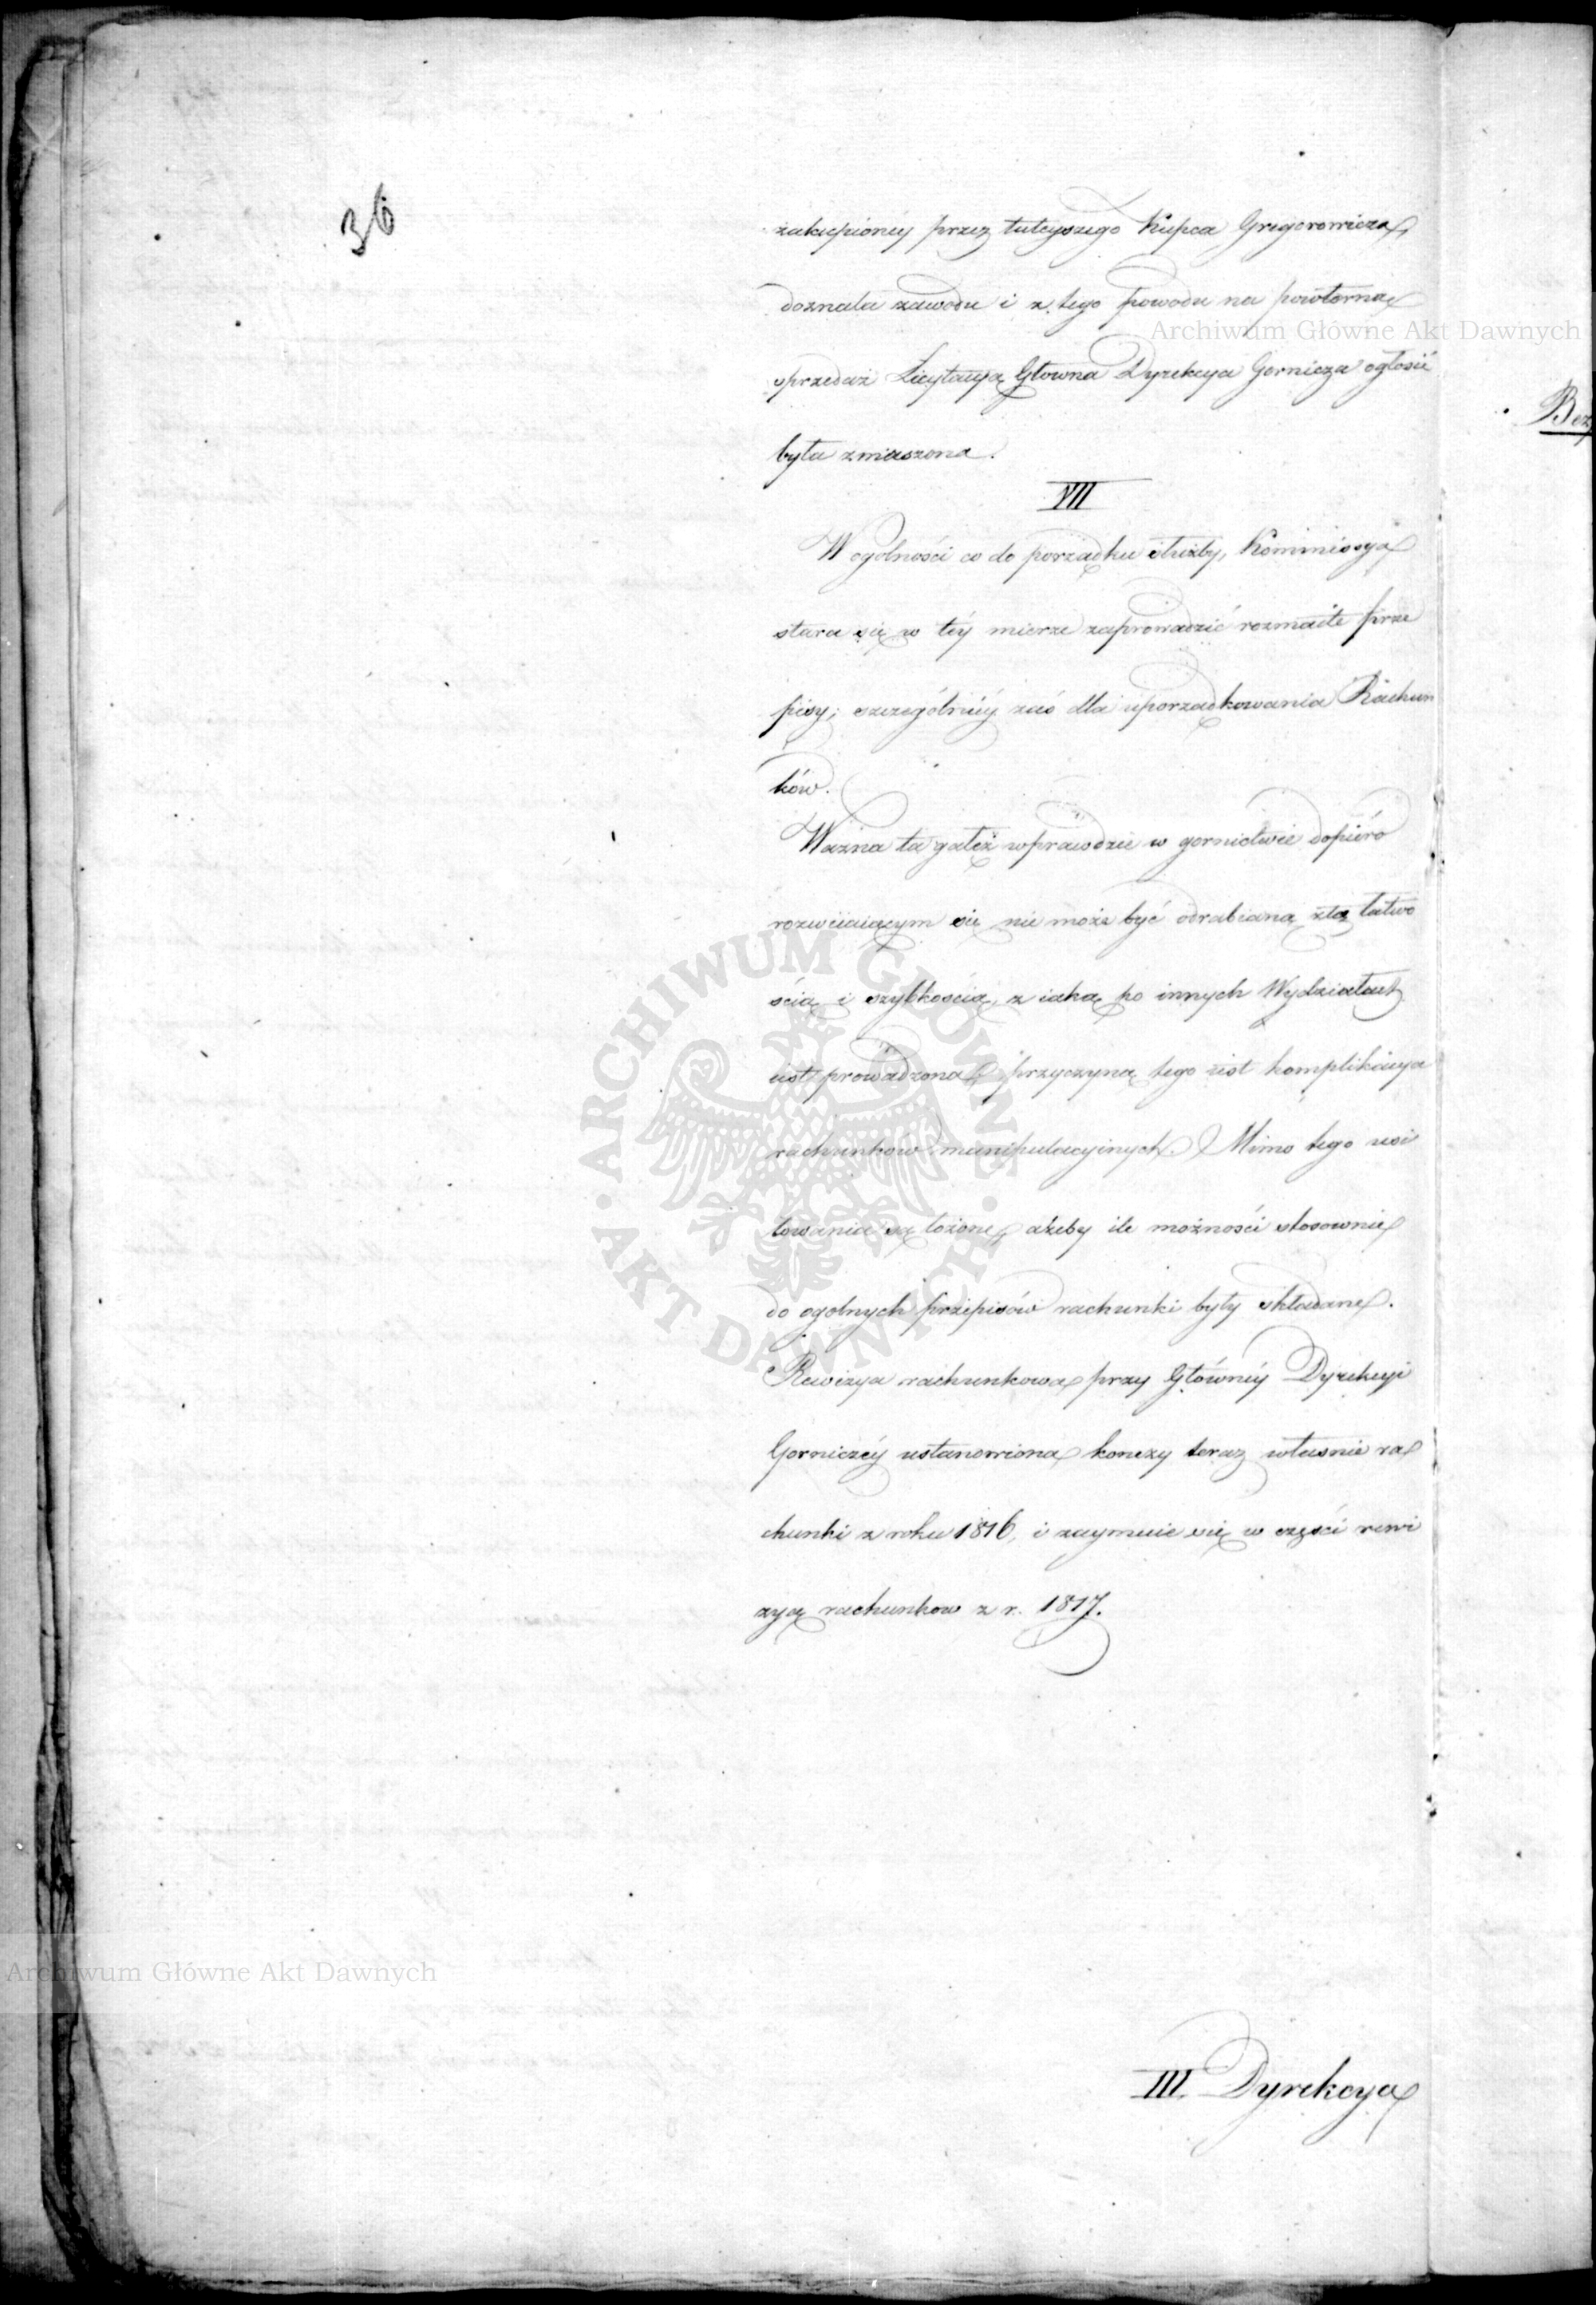 36
zakupióney przez tuteyszego Kupca Gregorowicza,
doznała zawodu i z tego powodu na powtorną
Archiwum Główne Akt Dawnych
sprzedaż Licytacyą Głowna Dyrekcya Gornicza ogłosić
Bez
była zmuszona.
VII
W ogolności co do porządku służby, Kommissya
stara się w téy mierze zaprowadzić rozmaite prze
pisy; szczególniéy zaś dla uporządkowania Rachun
ków.
Ważna ta gałęź wprawdzie w gornictwie dopiéro
rozwiiaiącym się nie może być odrabianą z tą łatwo
ścią i szybkością, z iaką po innych Wydziałach
iest prowadzona, przyczyną tego iest komplikacya
rachunkow manipulacyinych. Mimo tego usi
łowania są łożone, ażeby ile możności stosownie
do ogolnych przepisów rachunki były składane.
Rewizya rachunkowa przy Głównéy Dyrekcyi
Gorniczéy ustanowiona kończy teraz własnie ra
chunki z roku 1816, i zaymuie się w części rewi
zyą rachunkow z r. 1817.
ARCHIWUM GŁÓWNE AKT DAWNYCH
Archiwum Główne Akt Dawnych
III. Dyrekcya